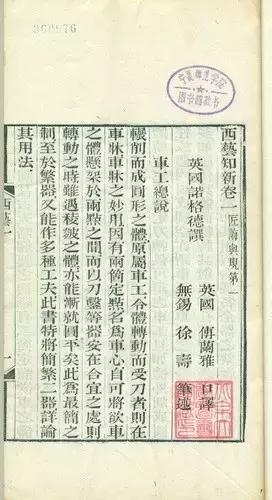 西藝知新卷一 匠誨與規第一
英國諾格德譔
英國 傅蘭雅 口譯
無錫 徐壽 筆述
車工總說
輥削而成圓形之體原屬車工令體轉動而受刀者則在
車牀車牀之妙用因有兩箇定點名爲車心自可將欲車
之體懸架於兩點之間而以刀鑿等器安在合宜之處則
轉動之時雖遇稜皺之體亦能漸就圓平矣此爲最簡之
制至於繁器又能作多種工夫此書特將簡繁二器詳論
其用法
西藝一
一